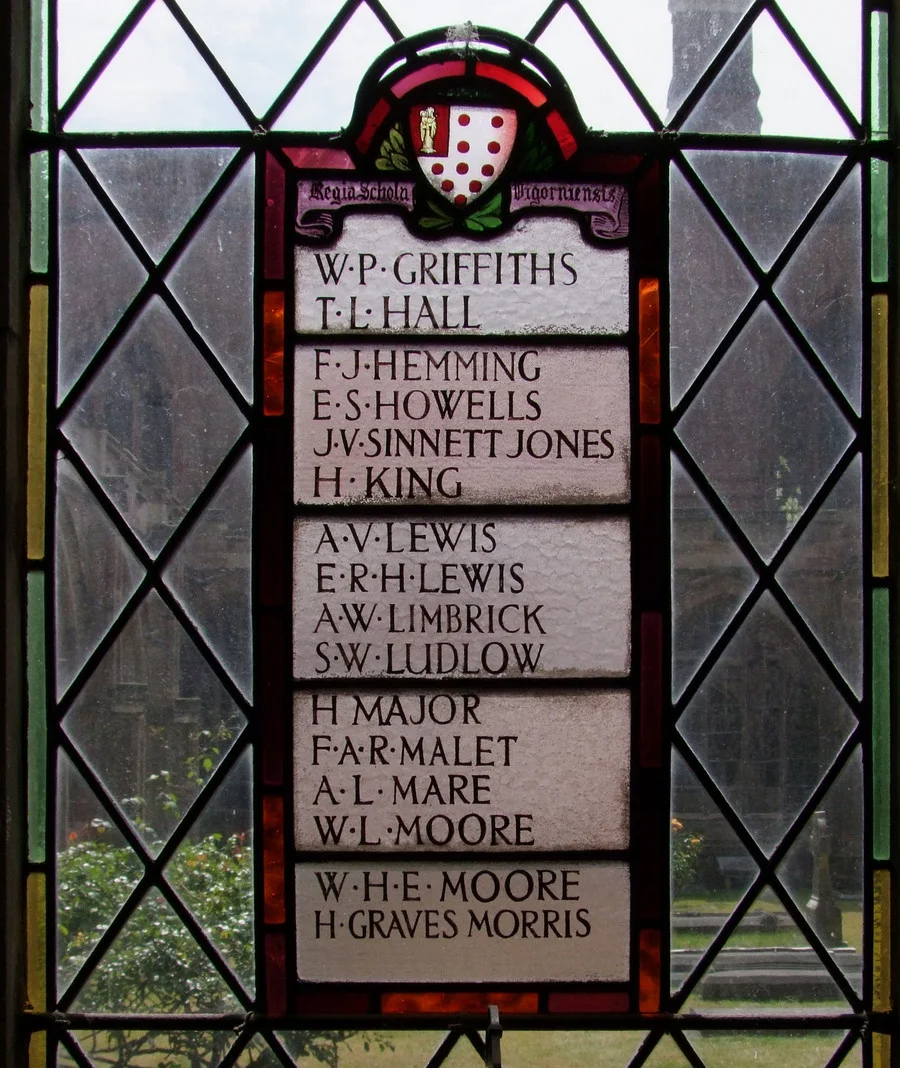 Regia Schola Vigorniensis
W·P·GRIFFITHS
T·L·HALL
F·J·HEMMING
E·S·HOWELLS
J·V·SINNETT JONES
H·KING
A·V·LEWIS
E·R·H·LEWIS
A·W·LIMBRICK
S·W·LUDLOW
H MAJOR
F·A·R·MALET
A·L·MARE
W·L·MOORE
W·H·E·MOORE
H·GRAVES MORRIS